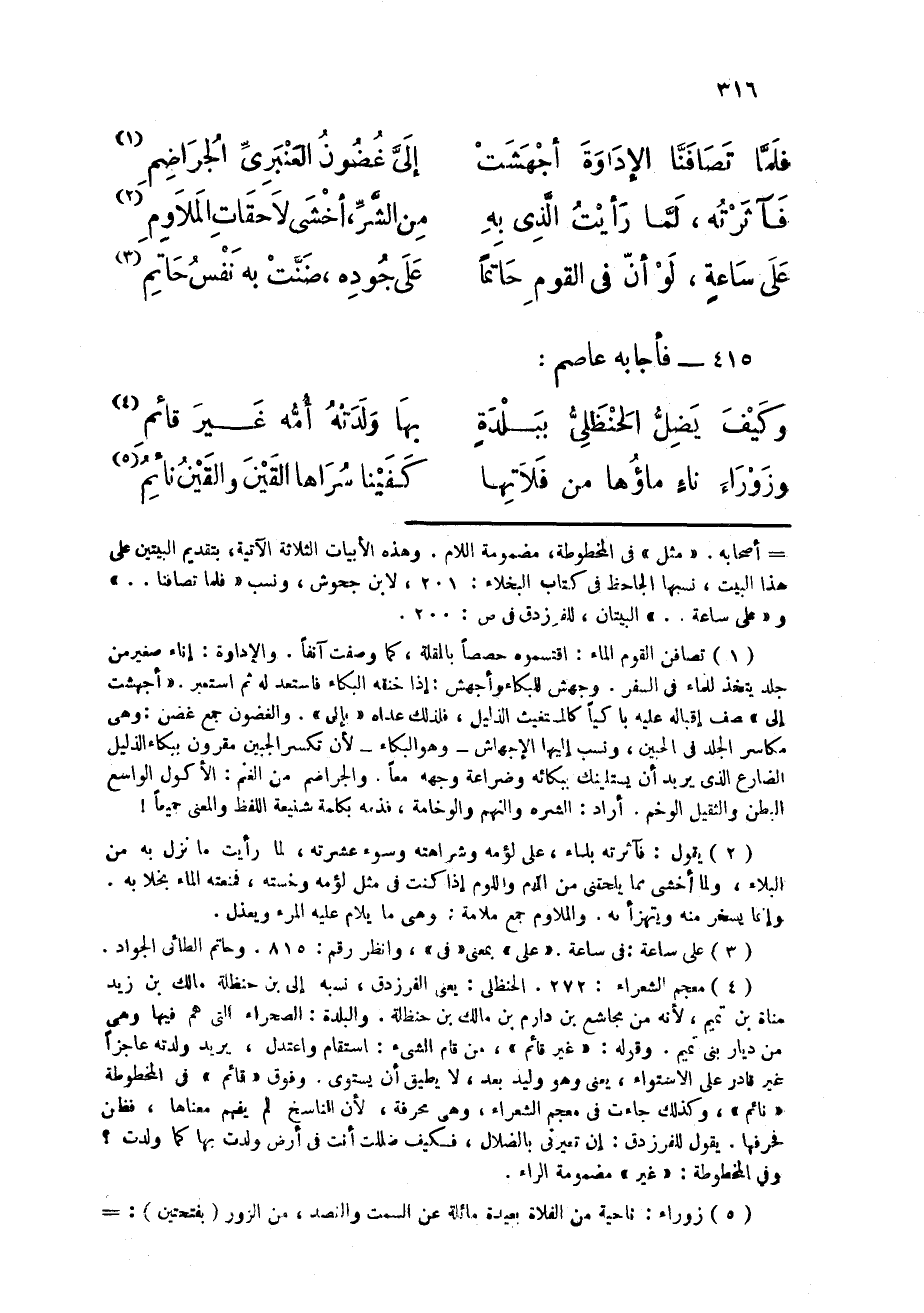 ٣١٦
فلَمَّا تَصَافَنَّا الإِدَاوَةَ أجْهَشَتْ إلَىَّ غُضُونُ العَنْبَرِىِّ الْجُرَاضِمِ (١)
فَآثَرْتُه ، لَمَّا رَأيْتُ الَّذِى بِهِ مِن الشَّرِّ، أخْشَى لاَحقَاتِ المَلاَوِمِ (٢)
عَلَى سَاعةٍ ، لَوْ أنّ فى القومِ حَاتمًا عَلَى جُودِه ، ضَنَّتْ به نَفْسُ حَاتِمِ (٣)
٤١٥ — فأجابه عاصم :
وكَيْفَ يَضِلُّ الحَنْظَلِىُّ بَبَلْدَةٍ بِهَا وَلَدَتْهُ أُمُّه غَيرَ قائم (٤)
وزَوْرَاءَ ناءٍ ماؤُها من فَلَاتِها كَفَيْنا سُرَاها القَيْنَ والقَيْنُ نائمُ (٥)
= أصحابه . « مثل » فى المخطوطة، مضمومة اللام . وهذه الأبيات الثلاثة الآتية، بتقديم البيتين على
هذا البيت ، نسبها الجاحظ فى كتاب البخلاء : ٢٠١ ، لابن جحوش ، ونسب « فلما تصافنا . . »
و « على ساعة . . » البيتان ، للفرزدق فى ص : ٢٠٠ .
( ١ ) تصافن القوم الماء : اقتسموه حصصاً بالمقلة ، كما وصفت آنفاً . والإداوة : إناء صغير من
جلد يتخذ للماء فى السفر . وجهش للبكاء وأجهش : إذا خنقه البكاء فاستعد له ثم استعبر . « أجهشت
إلى » صف إقباله عليه باكياً كالمستغيث الذليل ، فلذلك عداه « بإلى » . والغضون جمع غضن : وهى
مكاسر الجلد فى الجبين ، ونسب إليها الإجهاش — وهو البكاء — لأن تكسر الجبين مقرون ببكاء الذليل
الضارع الذى يريد أن يستلينك ببكائه وضراعة وجهه معاً . والجراضم من الغنم : الأكول الواسع
البطن والثقيل الوخم . أراد : الشره والنهم والوخامة ، فذمه بكلمة شنيعة اللفظ والمعنى جميعاً !
( ٢ ) يقول : فآثرته بالماء ، على لؤمه وشراهته وسوء عشرته ، لما رأيت ما نزل به من
البلاء ، ولما أخشى مما يلحقنى من الذم واللوم إذا كنت فى مثل لؤمه وخسته ، فمنعته الماء بخلا به .
وإنما يسخر منه ويتهزأ به . والملاوم جمع ملامة : وهى ما يلام عليه المرء ويعذل .
( ٣ ) على ساعة : فى ساعة . « على » بمعنى « فى » ، وانظر رقم : ٨١٥ . وحاتم الطائى الجواد .
( ٤ ) معجم الشعراء : ٢٧٢ . الحنظلى : يعنى الفرزدق ، نسبه إلى بن حنظلة مالك بن زيد
مناة بن تميم ، لأنه من مجاشع بن دارم بن مالك بن حنظلة . والبلدة : الصحراء التى هم فيها وهى
من ديار بنى تميم . وقوله : « غير قائم » ، من قام الشىء : استقام واعتدل ، يريد ولدته عاجزاً
غير قادر على الاستواء ، يعنى وهو وليد بعد ، لا يطيق أن يستوى . وفوق « قائم » فى المخطوطة
« نائم » ، وكذلك جاءت فى معجم الشعراء ، وهى محرفة ، لأن الناسخ لم يفهم معناها ، فظن
فحرفها . يقول للفرزدق : إن تعيرنى بالضلال ، فكيف ضللت أنت فى أرض ولدت بها كما ولدت ؟
وفى المخطوطة : « غير » مضمومة الراء .
( ٥ ) زوراء : ناحية من الفلاة بعيدة مائلة عن السمت والقصد ، من الزور ( بفتحتين ) : =